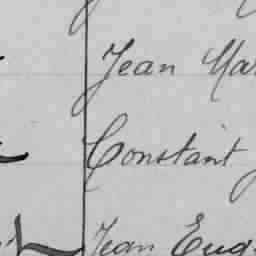 Jean Mar
Constant
Jean Eug